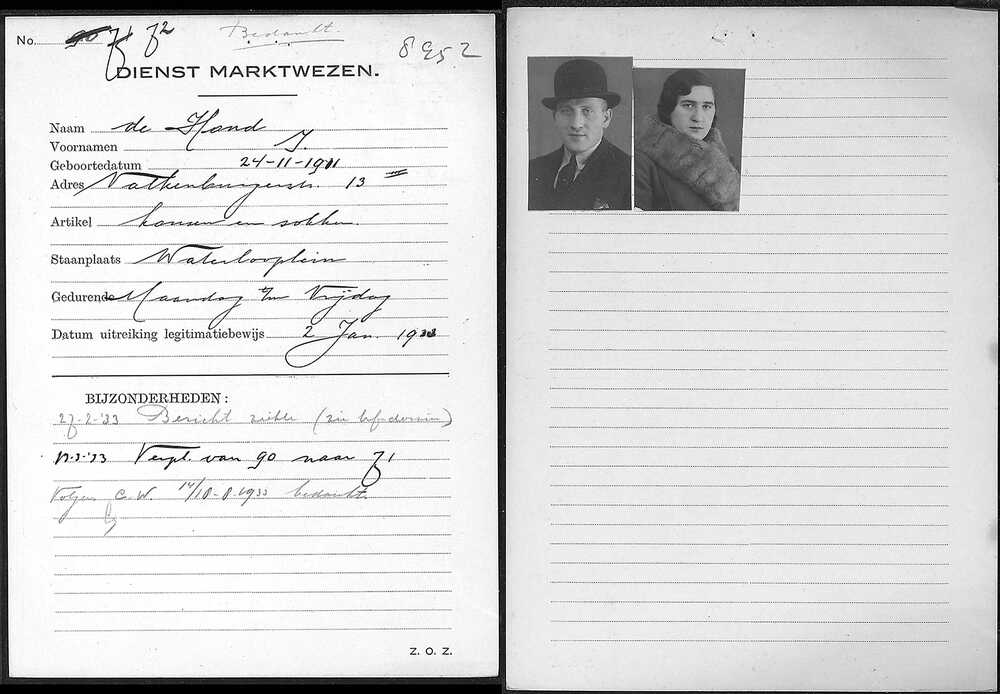 No. 90 71 72
Bedankt.
8952
DIENST MARKTWEZEN.
Naam de Hond
Voornamen I.
Geboortedatum 24-11-1911
Adres Valkenburgerstr. 13 III
Artikel kousen en sokken.
Staanplaats Waterlooplein
Gedurende Maandag t/m Vrijdag
Datum uitreiking legitimatiebewijs 2 Jan. 1933
BIJZONDERHEDEN:
27-2-'33 Bericht ziekte (zie
17-3-'33 Verpl. van 90 naar 71
Volgens C.W. 14/18-8-1933 bedankt.
Z. O. Z.